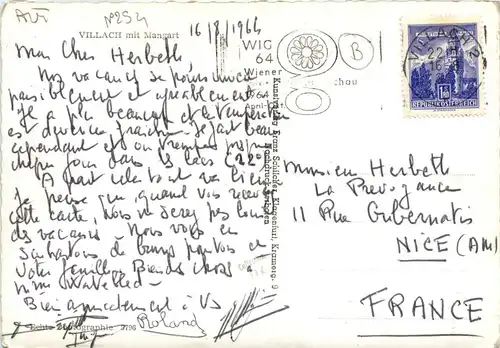 N°254
VILLACH mit Mangart
16/8/1964
Mon Cher Herbeth,
Nos vacances se poursuivent
paisiblement et agréablement
Il a plu beaucoup et la température
est devenue fraîche. Il fait beau
cependant et on
chaque jour dans les lacs (22°)
A part cela tout va bien
Je pense que, quand vous recevrez
cette carte, vous ne serez pas loin
des vacances. Nous vous en
souhaitons de bonnes pour vous et
votre famille. Bien des choses à
Bien amicalement à Vs
Roland
Echte Photographie 2796
Kunstverlag Franz Schilcher, Klagenfurt, Kramerg. 9
Nachdruck verboten
WIG
64
Wiener
schau
1964
April-Okt.
B
VILLACH 2
REPUBLIK ÖSTERREICH
Monsieur Herbeth
La Prévoyance
11 Rue Gubernatis
NICE (AM)
FRANCE